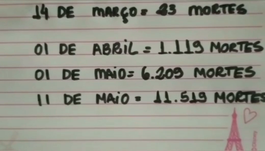 14 DE MARÇO = 23 MORTES
01 DE ABRIL = 1.119 MORTES
01 DE MAIO = 6.209 MORTES
11 DE MAIO = 11.519 MORTES